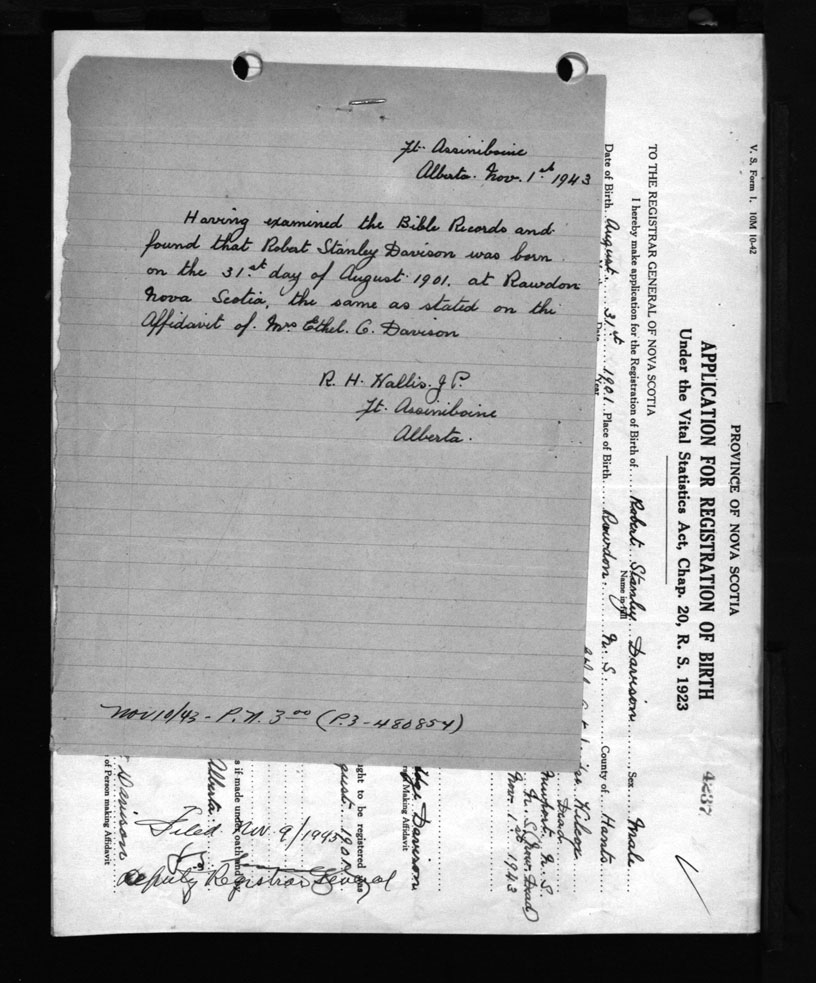 Ft. Assiniboine
Alberta. Nov. 1st 1943
Having examined the Bible Records and
found that Robert Stanley Davison was born
on the 31st day of August 1901. at Rawdon
Nova Scotia, the same as stated on the
Affidavit of. Mrs Ethel. C. Davison
R. H. Wallis. J P.
Ft. Assiniboine
Alberta.
Nov 10/43 - P.N. 3 00 (P.3-480854)
V. S. Form 1. 10M 10-42
PROVINCE OF NOVA SCOTIA
APPLICATION FOR REGISTRATION OF BIRTH
Under the Vital Statistics Act, Chap. 20, R. S. 1923
4237
TO THE REGISTRAR GENERAL OF NOVA SCOTIA
I hereby make application for the Registration of Birth of Robert Stanley Davison Sex Male
Name in full
Date of Birth August 31st 1901 Place of Birth Rawdon N. S. County of Hants
Year
Wilcox
Dead
Newport N. S.
N. S. (Now Dead)
Nov. 1st 1943
Davison
Making Affidavit
ght to be registered was
gust 1901
s if made under oath and by
Alberta
Davison
of Person making Affidavit
Filed Nov. 9/1945
Deputy Registrar General